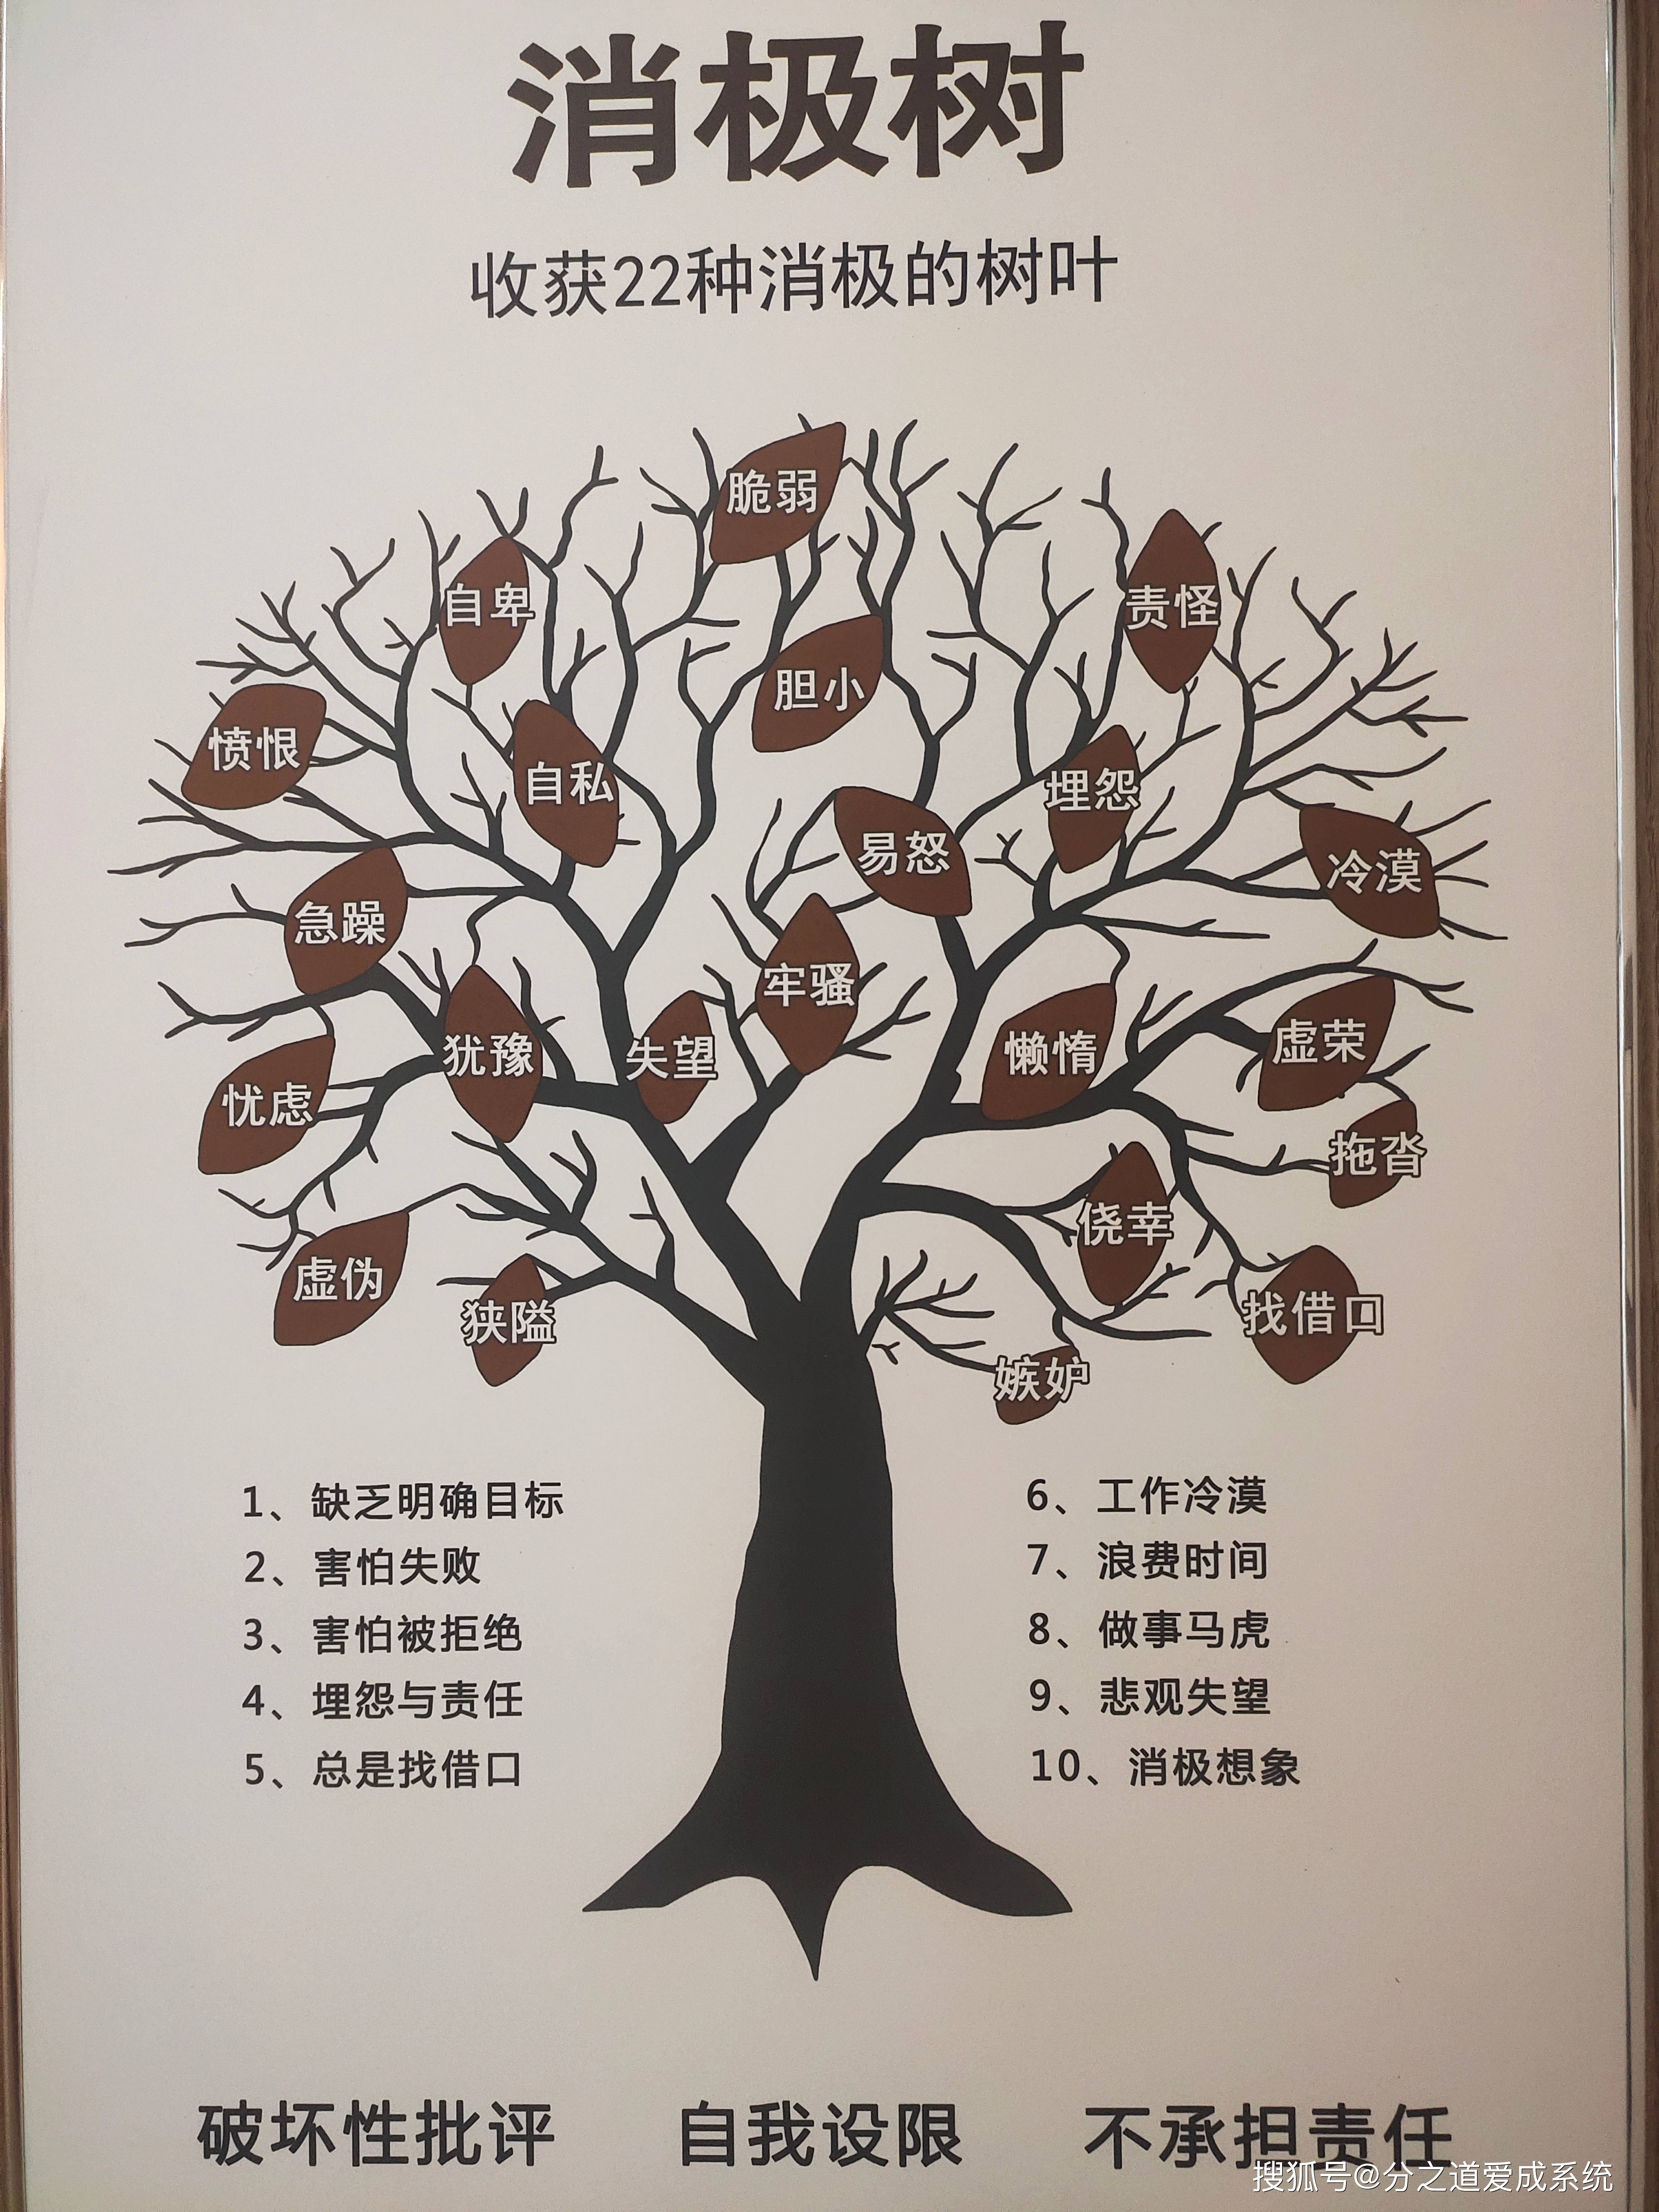 消极树
收获22种消极的树叶
脆弱
自卑
责怪
胆小
愤恨
自私
埋怨
易怒
冷漠
急躁
牢骚
犹豫
失望
懒惰
虚荣
忧虑
拖沓
侥幸
虚伪
狭隘
找借口
嫉妒
1、缺乏明确目标
2、害怕失败
3、害怕被拒绝
4、埋怨与责任
5、总是找借口
6、工作冷漠
7、浪费时间
8、做事马虎
9、悲观失望
10、消极想象
破坏性批评 自我设限 不承担责任
搜狐号@分之道爱成系统